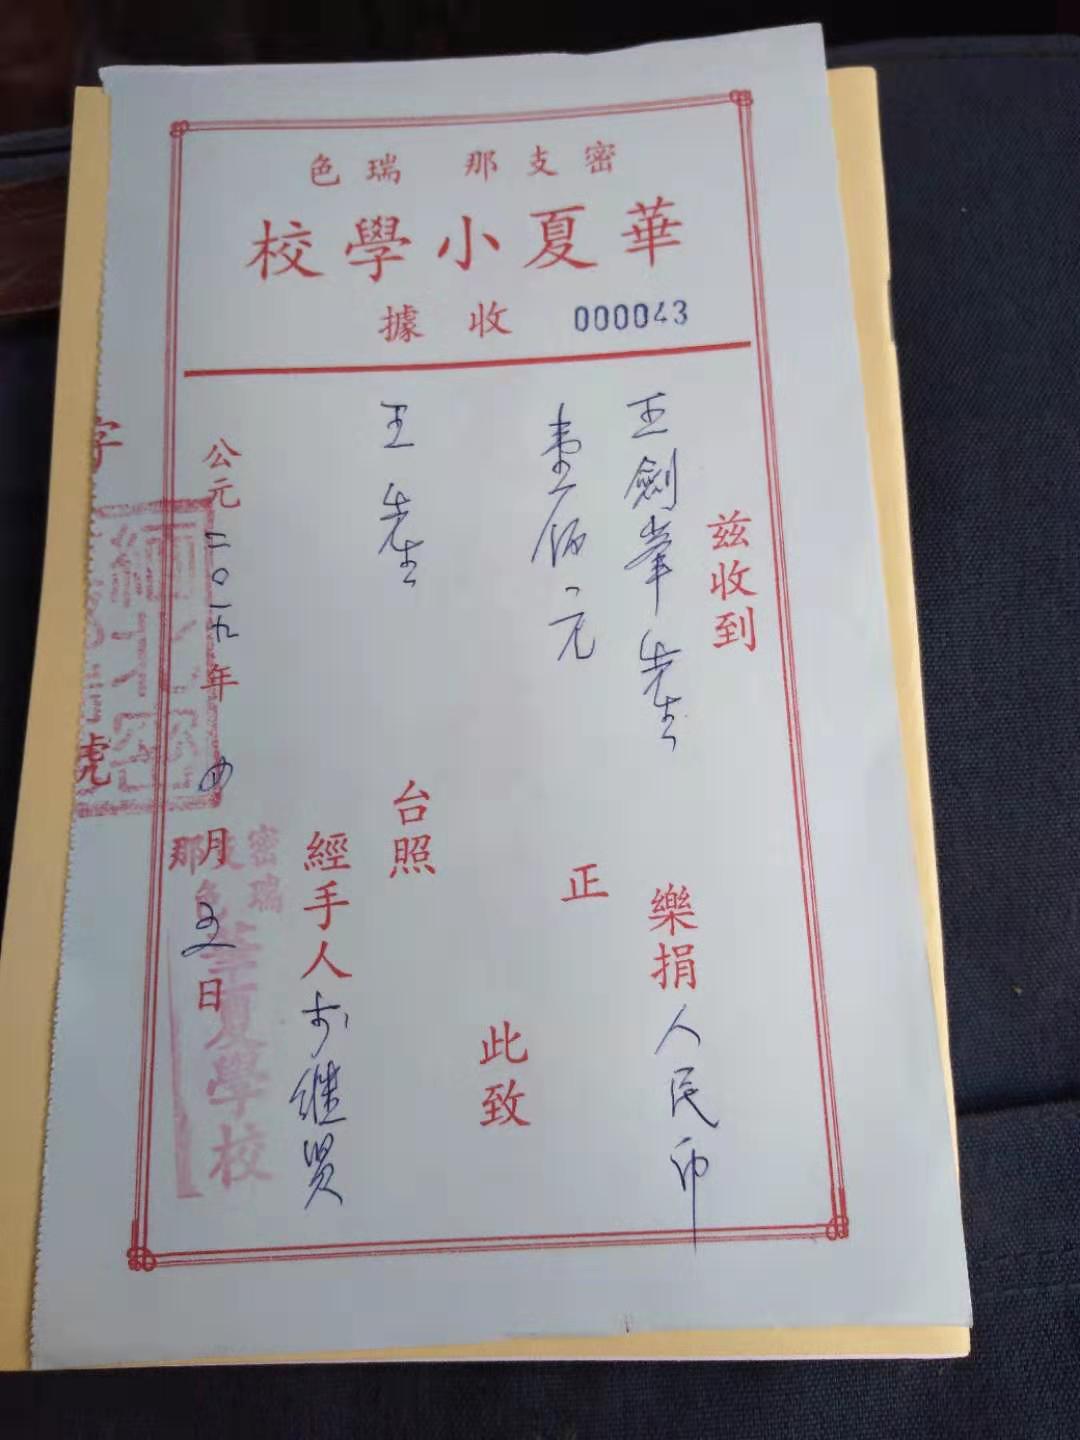 密支那 瑞色
華夏小學校
收據 000043
茲收到
王劍峯先生 樂捐人民币
壹佰元 正
此致
王先生 台照
經手人
公元二〇一九年四月五日
字
號
緬北密
密支那
瑞色
華夏學校